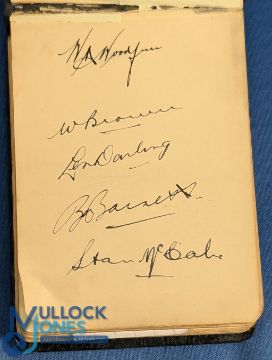 W A Woodfull
W Brown
Len Darling
B Barnett
Stan McCabe
MULLOCK
JONES